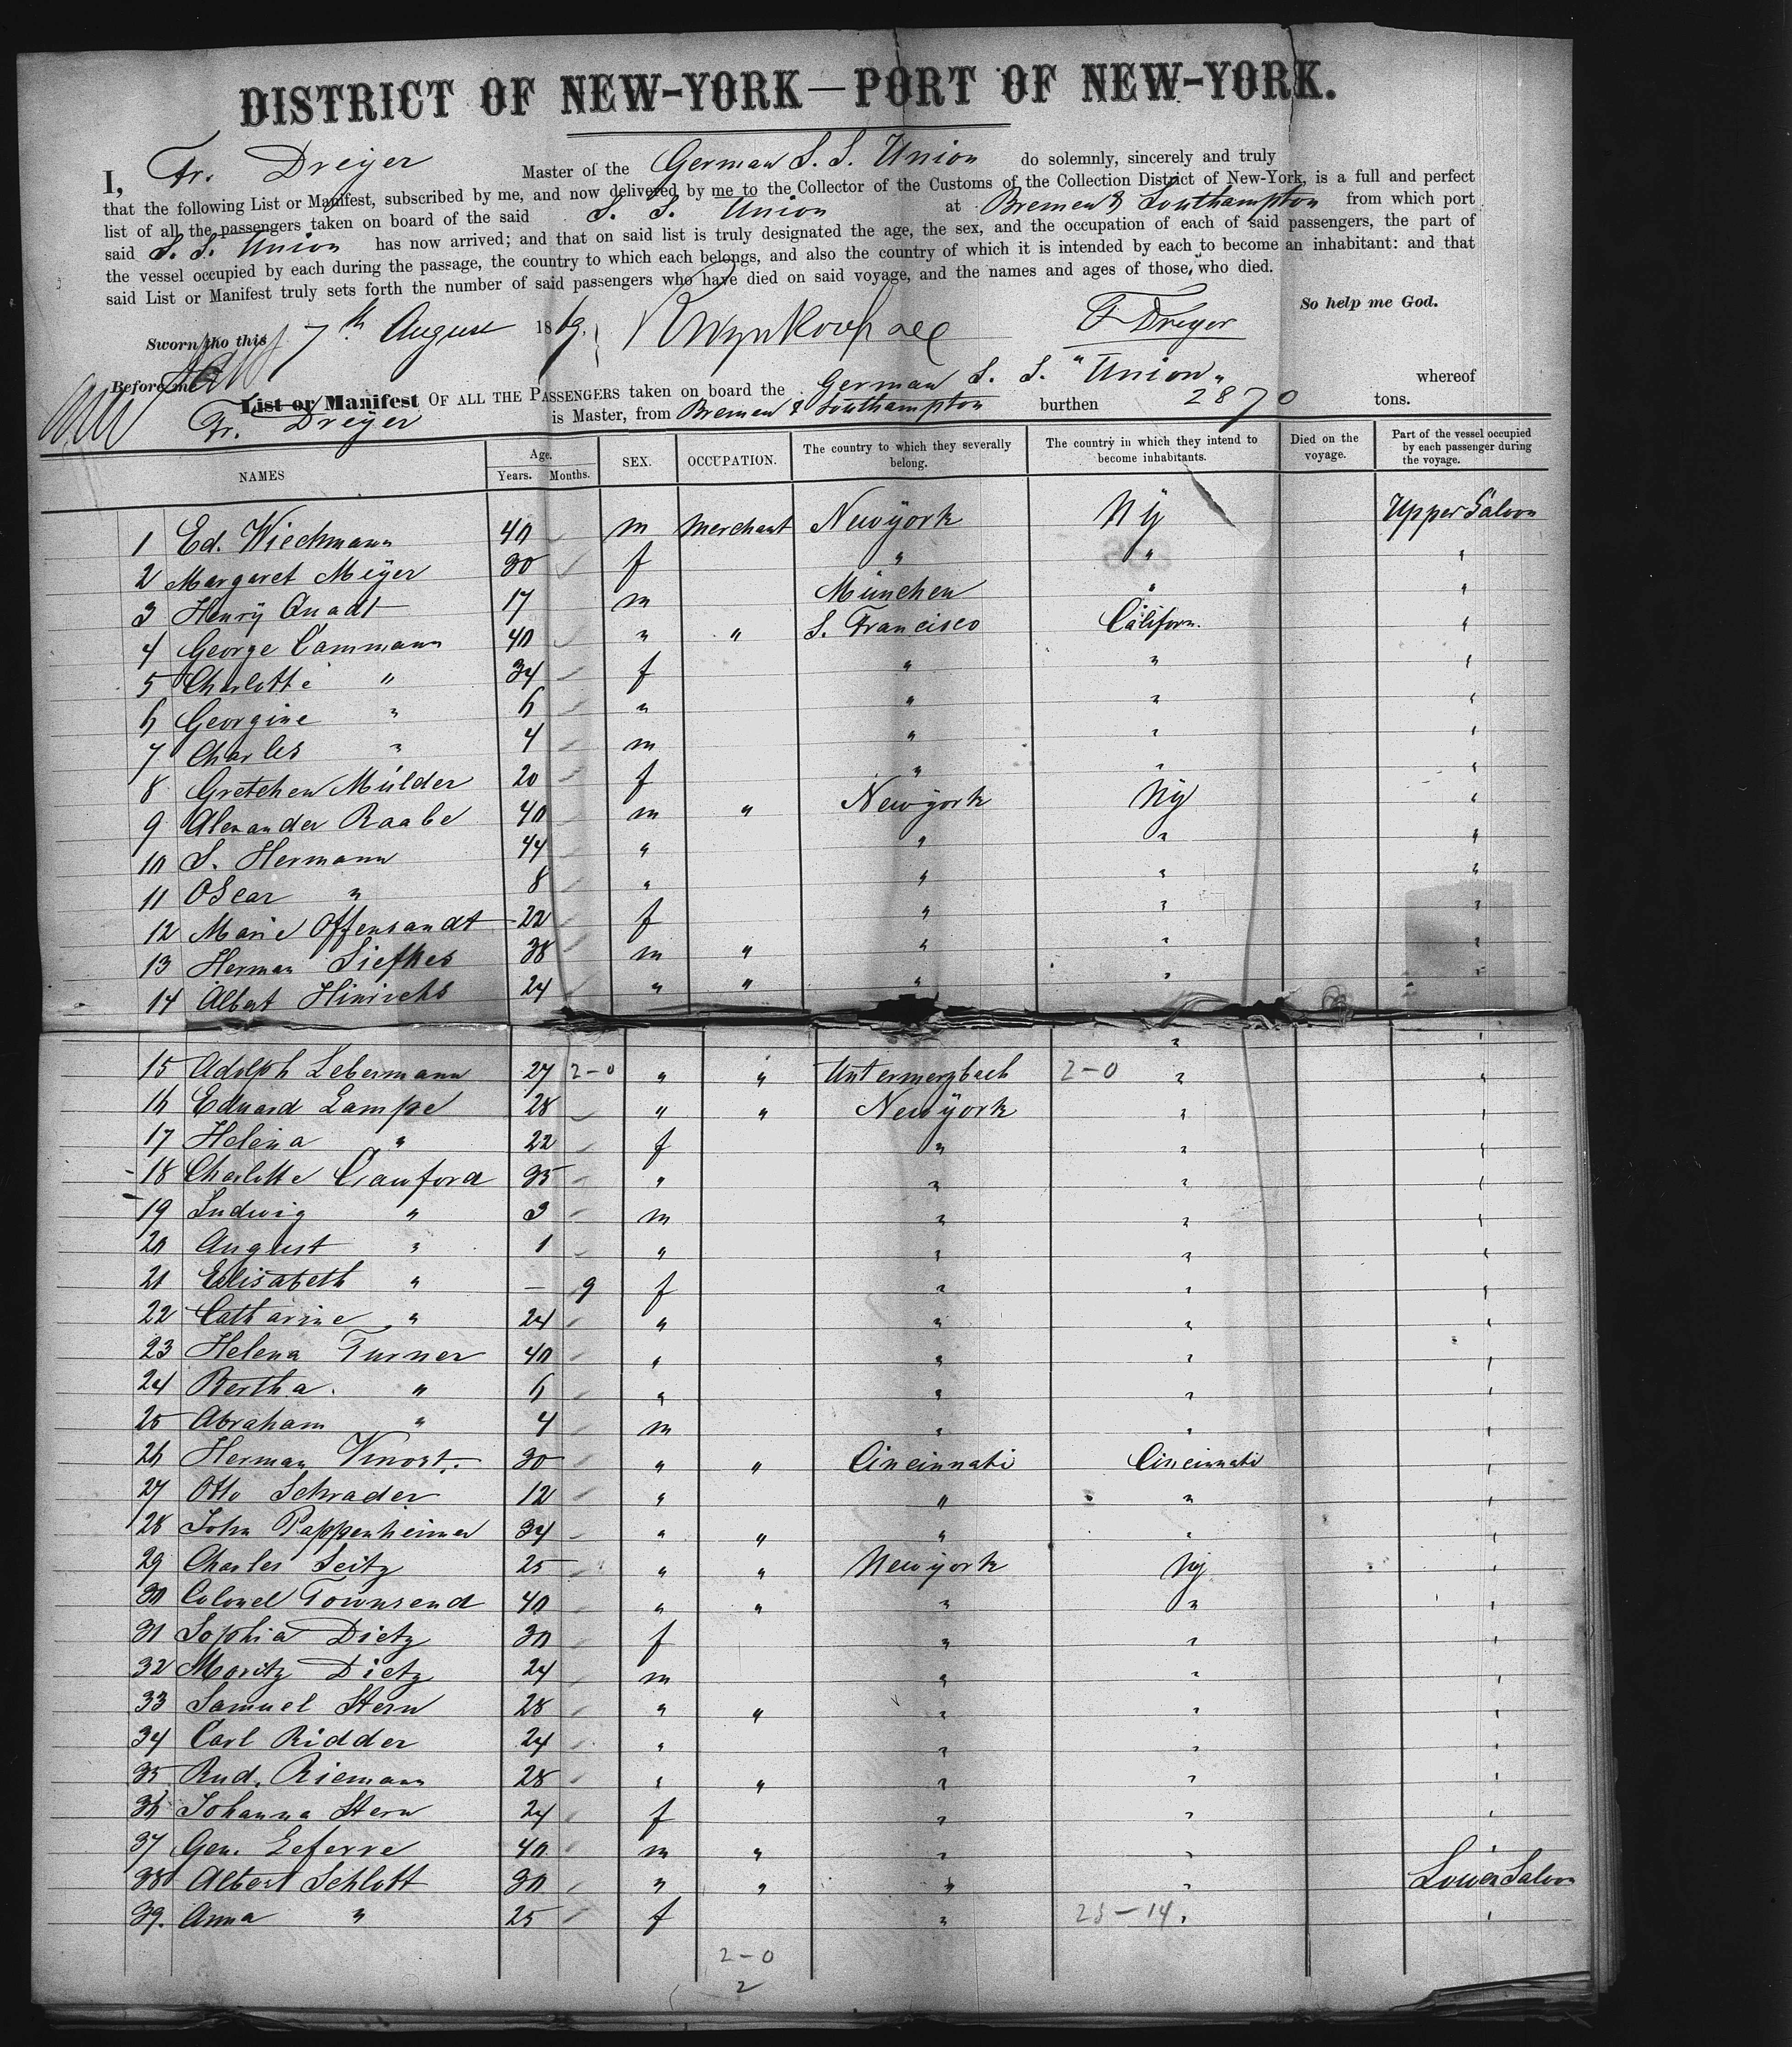 DISTRICT OF NEW-YORK—PORT OF NEW-YORK.
I, Fr. Dreyer Master of the German S. S. Union do solemnly, sincerely and truly
that the following List or Manifest, subscribed by me, and now delivered by me to the Collector of the Customs of the Collection District of New-York, is a full and perfect
list of all the passengers taken on board of the said S. S. Union at Bremen & Southampton from which port
said S. S. Union has now arrived; and that on said list is truly designated the age, the sex, and the occupation of each of said passengers, the part of
the vessel occupied by each during the passage, the country to which each belongs, and also the country of which it is intended by each to become an inhabitant: and that
said List or Manifest truly sets forth the number of said passengers who have died on said voyage, and the names and ages of those, who died.
So help me God.
Sworn tho this 7th August 1869. F Dreyer
Before me
List or Manifest OF ALL THE PASSENGERS taken on board the German S. S. "Union" whereof
Fr. Dreyer is Master, from Bremen & Southampton burthen 2870 tons.
NAMES Age. Years. Months. SEX. OCCUPATION. The country to which they severally belong. The country in which they intend to become inhabitants. Died on the voyage. Part of the vessel occupied by each passenger during the voyage.
1 Ed. Wiechmann 40 m Merchant Newÿork Nÿ Upper Saloon
2 Margaret Meÿer 30 f " " "
3 Henrÿ Quadt 17 m München " "
4 George Cammann 40 " " S. Francisco Californ. "
5 Charlotte " 34 f " " "
6 Georgine " 6 " " " "
7 Charles " 4 m " " "
8 Gretchen Mülder 20 f " " "
9 Alexander Raabe 40 m " Newÿork Nÿ "
10 S. Hermann 44 " " " "
11 Oscar " 8 " " " "
12 Marie Offensandt 22 f " " "
13 Herman Siefkes 38 m " " " "
14 Albert Hinrichs 24 " " " " "
15 Adolph Lebermann 27 2-0 " " Untermerzbach 2-0 " "
16 Eduard Lampe 28 " " Newÿork " "
17 Helena " 22 f " " "
18 Charlotte Crawford 35 " " " "
19 Ludwig " 3 m " " "
20 August " 1 " " " "
21 Elisabeth " — 9 f " " "
22 Catharine " 24 " " " "
23 Helena Turner 40 " " " "
24 Bertha " 6 " " " "
25 Abraham " 4 m " " "
26 Herman 30 " " Cincinnati Cincinnati "
27 Otto Schrader 12 " " " "
28 John Pappenheimer 34 " " " " "
29 Charles Seitz 25 " " Newÿork Nÿ "
30 Colonel Townsend 40 " " " " "
31 Sophia Dietz 30 f " " "
32 Moritz Dietz 24 m " " "
33 Samuel Stern 28 " " " " "
34 Carl Ridder 24 " " " "
35 Rud. Riemann 28 " " " " "
36 Johanna Stern 24 f " " "
37 Gen. Leferre 40 m " " " "
38 Albert Schlott 30 " " " " Lower Saloon
39. Anna " 25 f " 25-14 " "
2-0
2